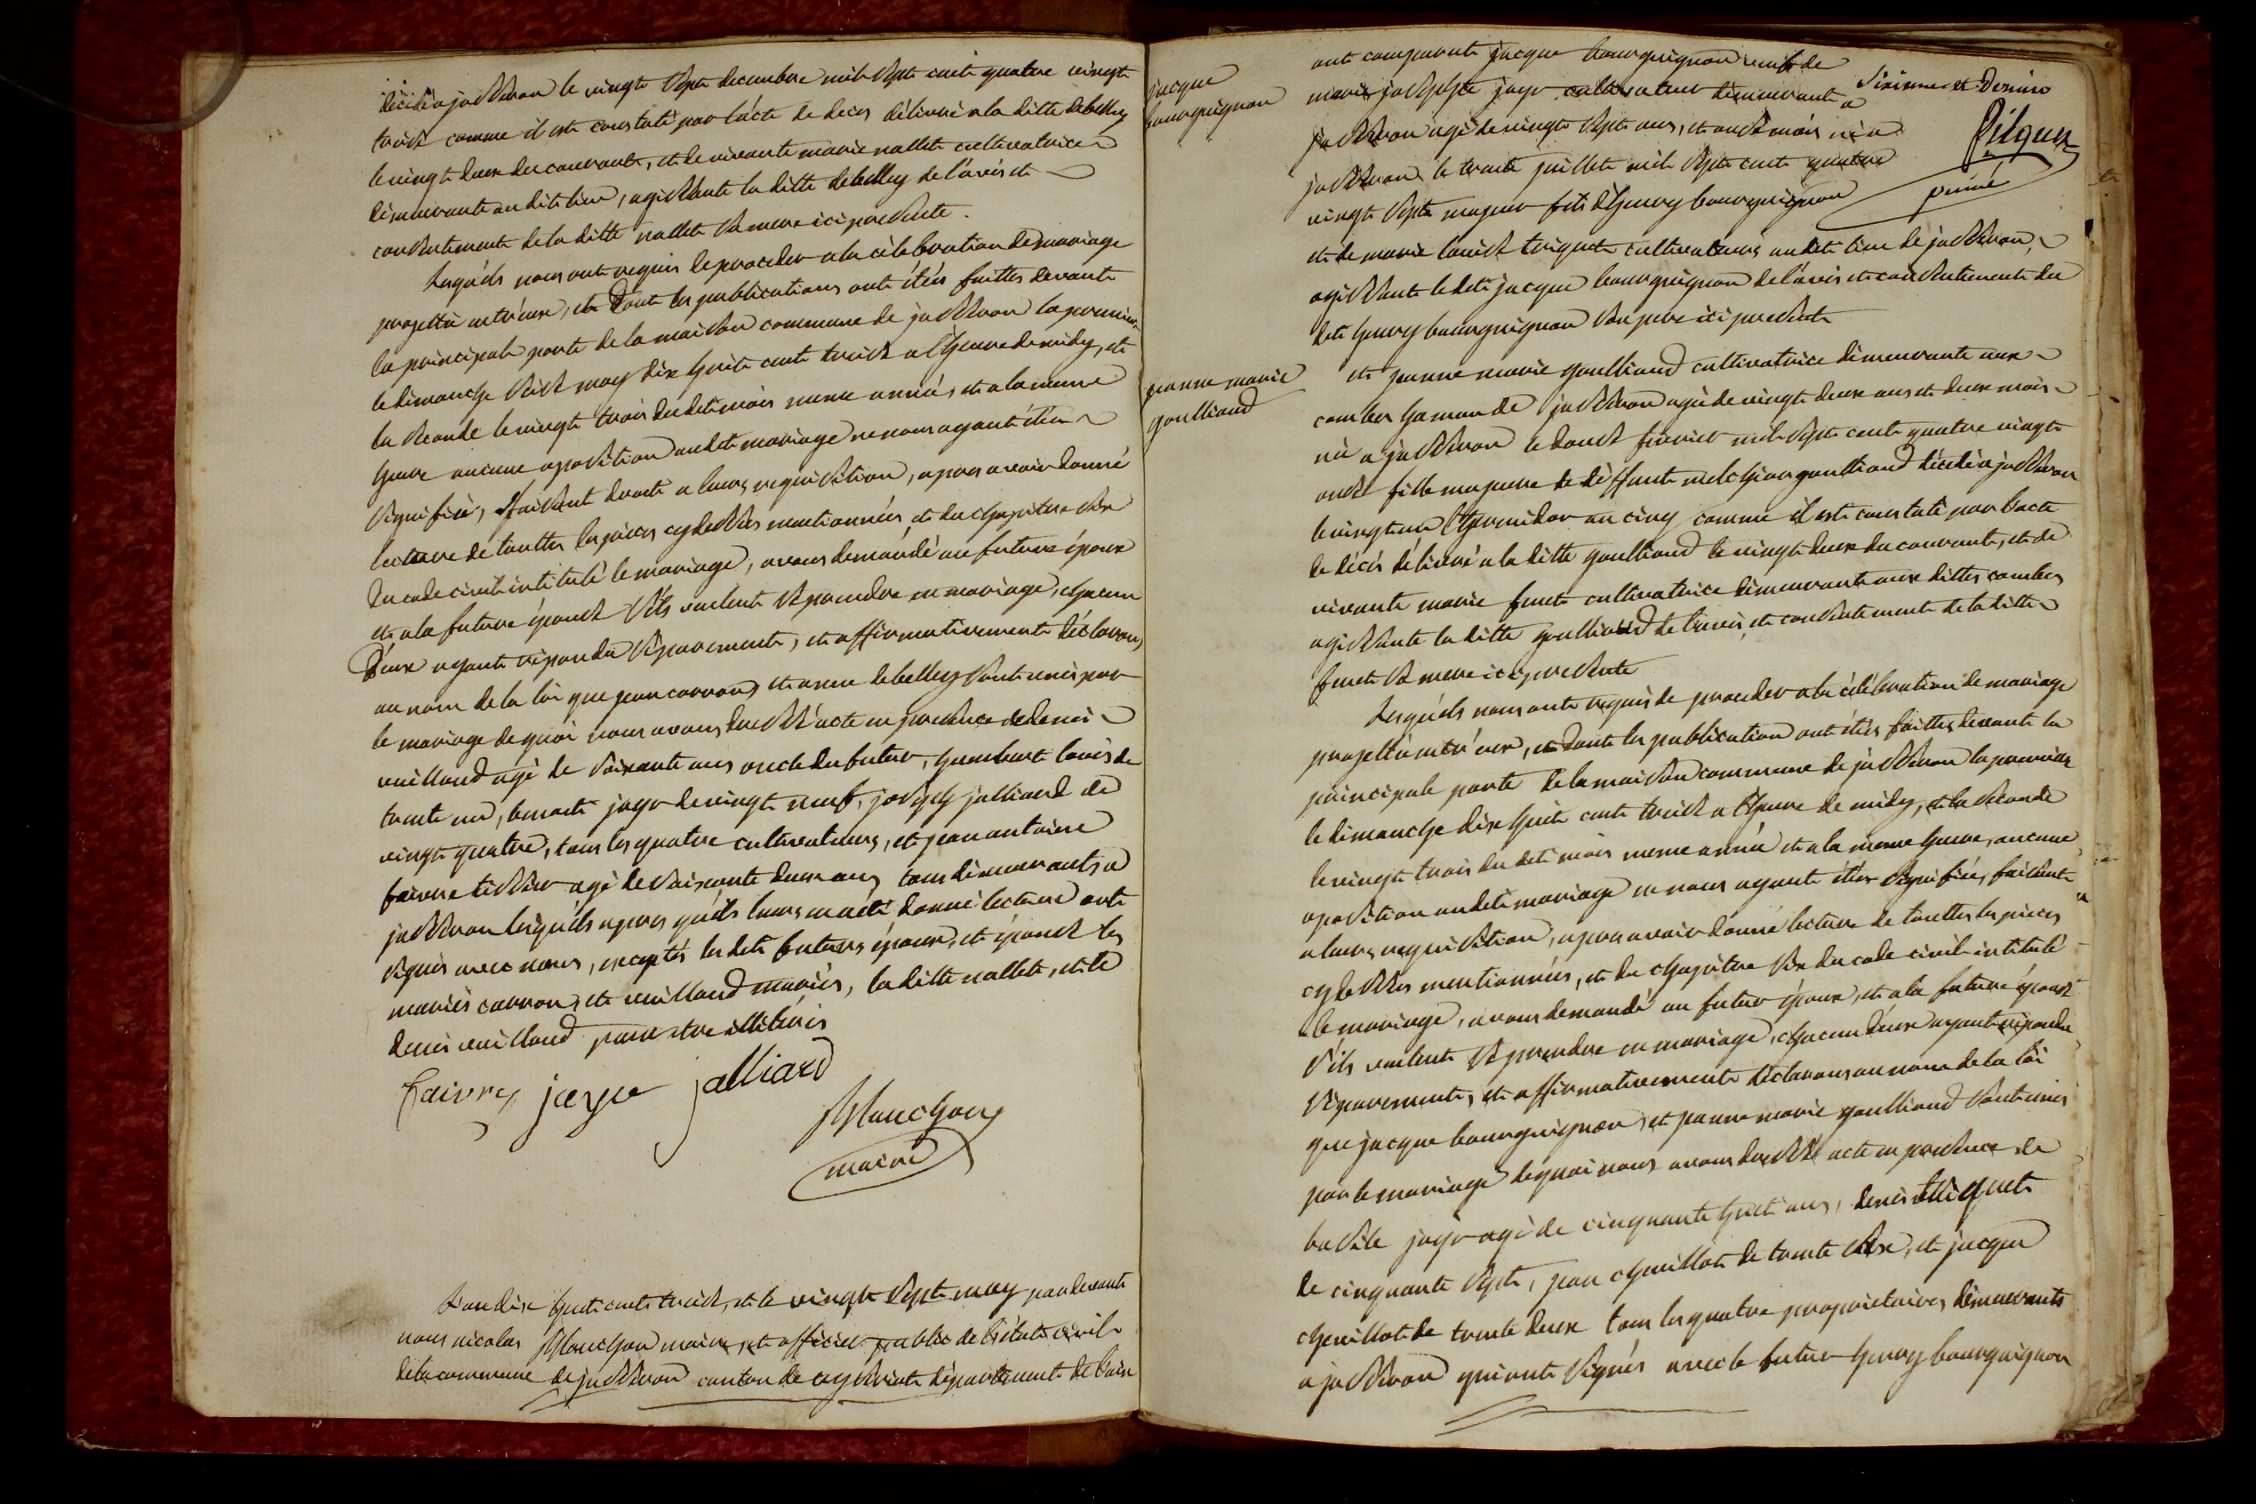 décédé a jasseron le vingt sept decembre mil sept cent quatre vingt
treise comme il est constaté par l'acte de deces délivré a la ditte debelley
le vingt deux du courant, et de vivante marie nallet cultivatrice
démeurante au dit lieu, agissante la ditte debelley de l'avis et
consentement de la ditte nallet sa mere ici presente.
Lesquéls nous ont requis de proceder a la célébration de mariage
projetté entréeux, et dont les publications ont étées faittes devant
la principale porte de la maison commune de jasseron la premiere
le dimanche seise may dix huit cent treise a l'heure de midy, et
la séconde le vingt trois du dit mois meme année, et a la meme
heure aucune oposition audit mariage ne nous ayant étée
signifiée, faisant droit a leurs requisition, apres avoir donné
lecture de touttes les pieces cydesses mentionnées, et du chapitre six
du code civil intitulé le mariage, avons demandé au future époux
et a la future épouse s'ils veulent se prendre en mariage, chacun
d'eux ayant répondu séparement, et affirmativement déclarons
au nom de la loi que jean carron, et anne debelley sont unis par
le mariage de quoi nous avons dressé acte en presence de denis
veuilland agé de soixante ans oncle du futur, humbert louis de
trente un, benoit jayr de vingt neuf, joseph jalliard de
vingt quatre, tous les quatre cultivateurs, et jean antoine
faivre tissier, agé de soixante deux ans tous démeurants a
jasseron lesquéls apres qu'ils leurs en a été donné lecture ont
signés avec nous, exceptés les dits futurs époux, et épouse les
mariés carron, et veuilland mariés, la ditte nallet, et le
denis veuilland pour etre illitérés
faivre jayr jalliard
Manchon
maire
L'an dix huit cent treise, et le vingt sept may pardevant
nous nicolas Manchon maire, et officier public de l'état civil
de la commune de jasseron canton de ceyzeriat département de l'ain
jacque
bourguignon
ont comparut jacque bourguignon veuf de
marie josephte jayr cultivateur démeurant a
jasseron agé de vingt sept ans, et onse mois née a
jasseron le trente juillet mil sept cent quatre
vingt sept majeur fils d'henry bourguignon
et de marie louise triquet cultivateurs au dit lieu de jasseron,
agissant le dit jacque bourguignon de l'avis et consentement du
dit henry bourguignon son pere ici present
Sixieme et Dernier
Pilgun
jeanne marie
goulliand
et jeanne marie goulliand cultivatrice démeurante aux
combes hameau de jasseron agée de vingt deux ans et deux mois
née a jasseron le douse février mil sept cent quatre vingt
onse fille majeure de déffunt melchior goulliand décédé a jasseron
le vingt un thermidor an cinq comme il est constaté par l'acte
de décés délivré a la ditte goulliand le vingt deux du courant, et de
vivante marie feuret cultivatrice démeurante aux dittes combes
agissante la ditte goulliand de l'avis, et consentement de la ditte
feuret sa mere ici presente
Lesquéls nous ont requis de proceder a la célébration de mariage
projetté entr'eux, et dont les publication ont étées faittes devant la
principale porte de la maison commune de jasseron la premiere
le dimanche dix huit cent treise a l'heure de midy, et la séconde
le vingt trois du dit mois meme année et a la meme heure, aucune
oposition audit mariage ne nous ayant étée signifiée, faisant
a leurs requisition, apres avoir donné lecture de touttes les pieces
cydesses mentionnées, et du chapitre six du code civil intitulé
le mariage, avons demandé au futur époux, et a la future épouse
s'ils veulent se prendre en mariage, chacun d'eux ayant répondu
séparement, et affirmativement déclarons au nom de la loi
que jacque bourguignon, et jeanne marie goulliand sont unis
par le mariage dequoi nous avons dressé acte en presence de
basile jayr agé de cinquante huit ans, denis triquet
de cinquante sept, jean chevillot de trente six, et jacque
chevillot de trente deux tous les quatre proprietaires démeurants
a jasseron qui ont signés avec le futur henry bourguignon